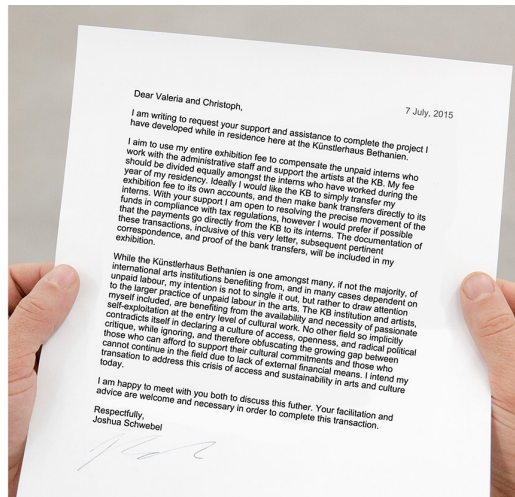 Dear Valeria and Christoph,
7 July, 2015
I am writing to request your support and assistance to complete the project I
have developed while in residence here at the Künstlerhaus Bethanien.
I aim to use my entire exhibition fee to compensate the unpaid interns who
work with the administrative staff and support the artists at the KB. My fee
should be divided equally amongst the interns who have worked during the
year of my residency. Ideally I would like the KB to simply transfer my
exhibition fee to its own accounts, and then make bank transfers directly to its
interns. With your support I am open to resolving the precise movement of the
funds in compliance with tax regulations, however I would prefer if possible
that the payments go directly from the KB to its interns. The documentation of
these transactions, inclusive of this very letter, subsequent pertinent
correspondence, and proof of the bank transfers, will be included in my
exhibition.
While the Künstlerhaus Bethanien is one amongst many, if not the majority, of
international arts institutions benefiting from, and in many cases dependent on
unpaid labour, my intention is not to single it out, but rather to draw attention
to the larger practice of unpaid labour in the arts. The KB institution and artists,
myself included, are benefiting from the availability and necessity of passionate
self-exploitation at the entry level of cultural work. No other field so implicitly
contradicts itself in declaring a culture of access, openness, and radical political
critique, while ignoring, and therefore obfuscating the growing gap between
those who can afford to support their cultural commitments and those who
cannot continue in the field due to lack of external financial means. I intend my
transation to address this crisis of access and sustainability in arts and culture
today.
I am happy to meet with you both to discuss this futher. Your facilitation and
advice are welcome and necessary in order to complete this transaction.
Respectfully,
Joshua Schwebel